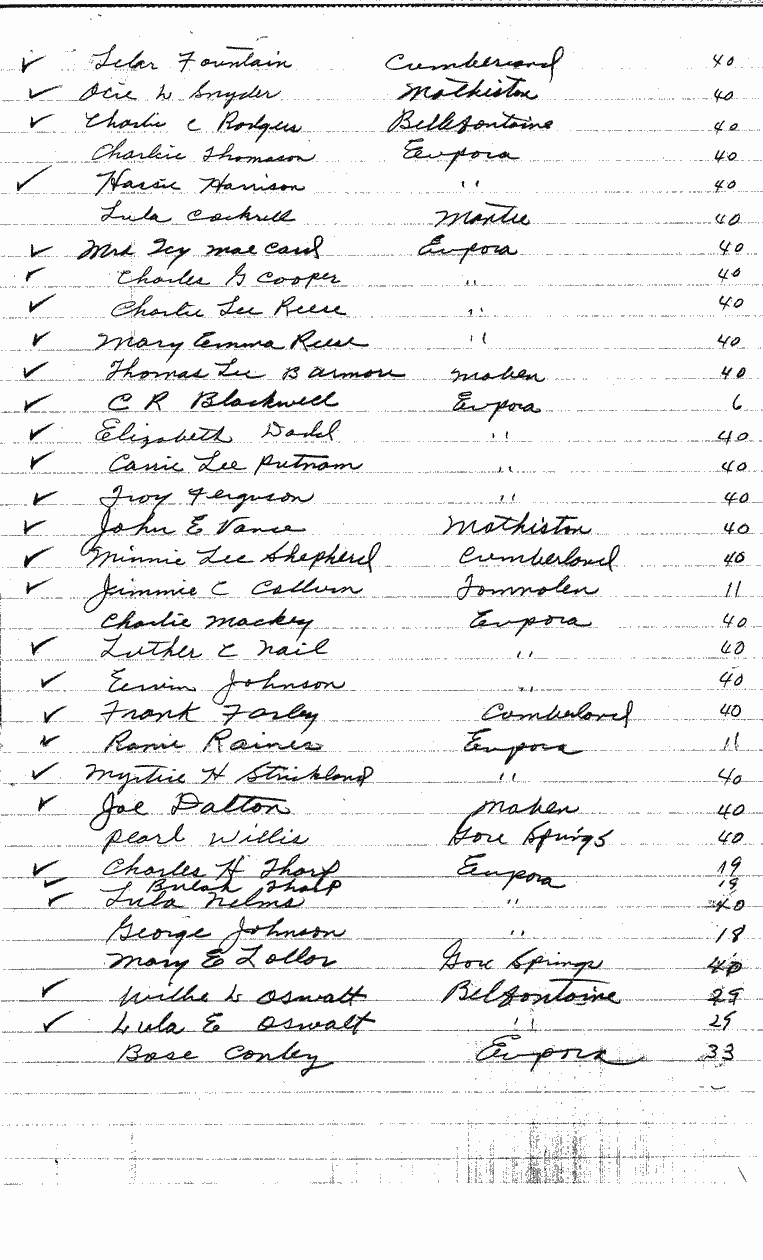 ✓ Lelar Fountain Cumberland 40
✓ Ocie L Snyder Mathiston 40
✓ Charlie C Rodgers Bellefontaine 40
Charlie Thomason Eupora 40
✓ Hassie Harrison " 40
Lula Cockrell Mantee 40
✓ Mrs Icy Mae Card Eupora 40
✓ Charles G Cooper " 40
✓ Charlie Lee Reese " 40
✓ Mary Emma Reese " 40
✓ Thomas Lee Barmore Maben 40
✓ C R Blackwell Eupora 6
✓ Elizabeth Dodd " 40
✓ Carrie Lee Putnam " 40
✓ Troy Ferguson " 40
✓ John E Vance Mathiston 40
✓ Minnie Lee Shepherd Cumberland 40
✓ Jimmie C Collum Tomnolen 11
Charlie Mackey Eupora 40
✓ Luther C Nail " 40
✓ Erwin Johnson " 40
✓ Frank Farley Cumberland 40
✓ Raines Eupora 11
✓ Myrtice H Strickland " 40
✓ Joe Dalton Maben 40
Pearl Willis Gore Springs 40
✓ Charles H Tharp Eupora 19
✓ Beulah Tharp 19
✓ Lula Nelms " 40
George Johnson " 18
Mary E Lollar Gore Springs 40
✓ Willie L Oswalt Belfontaine 29
✓ Lula E Oswalt " 29
Base Conley Eupora 33